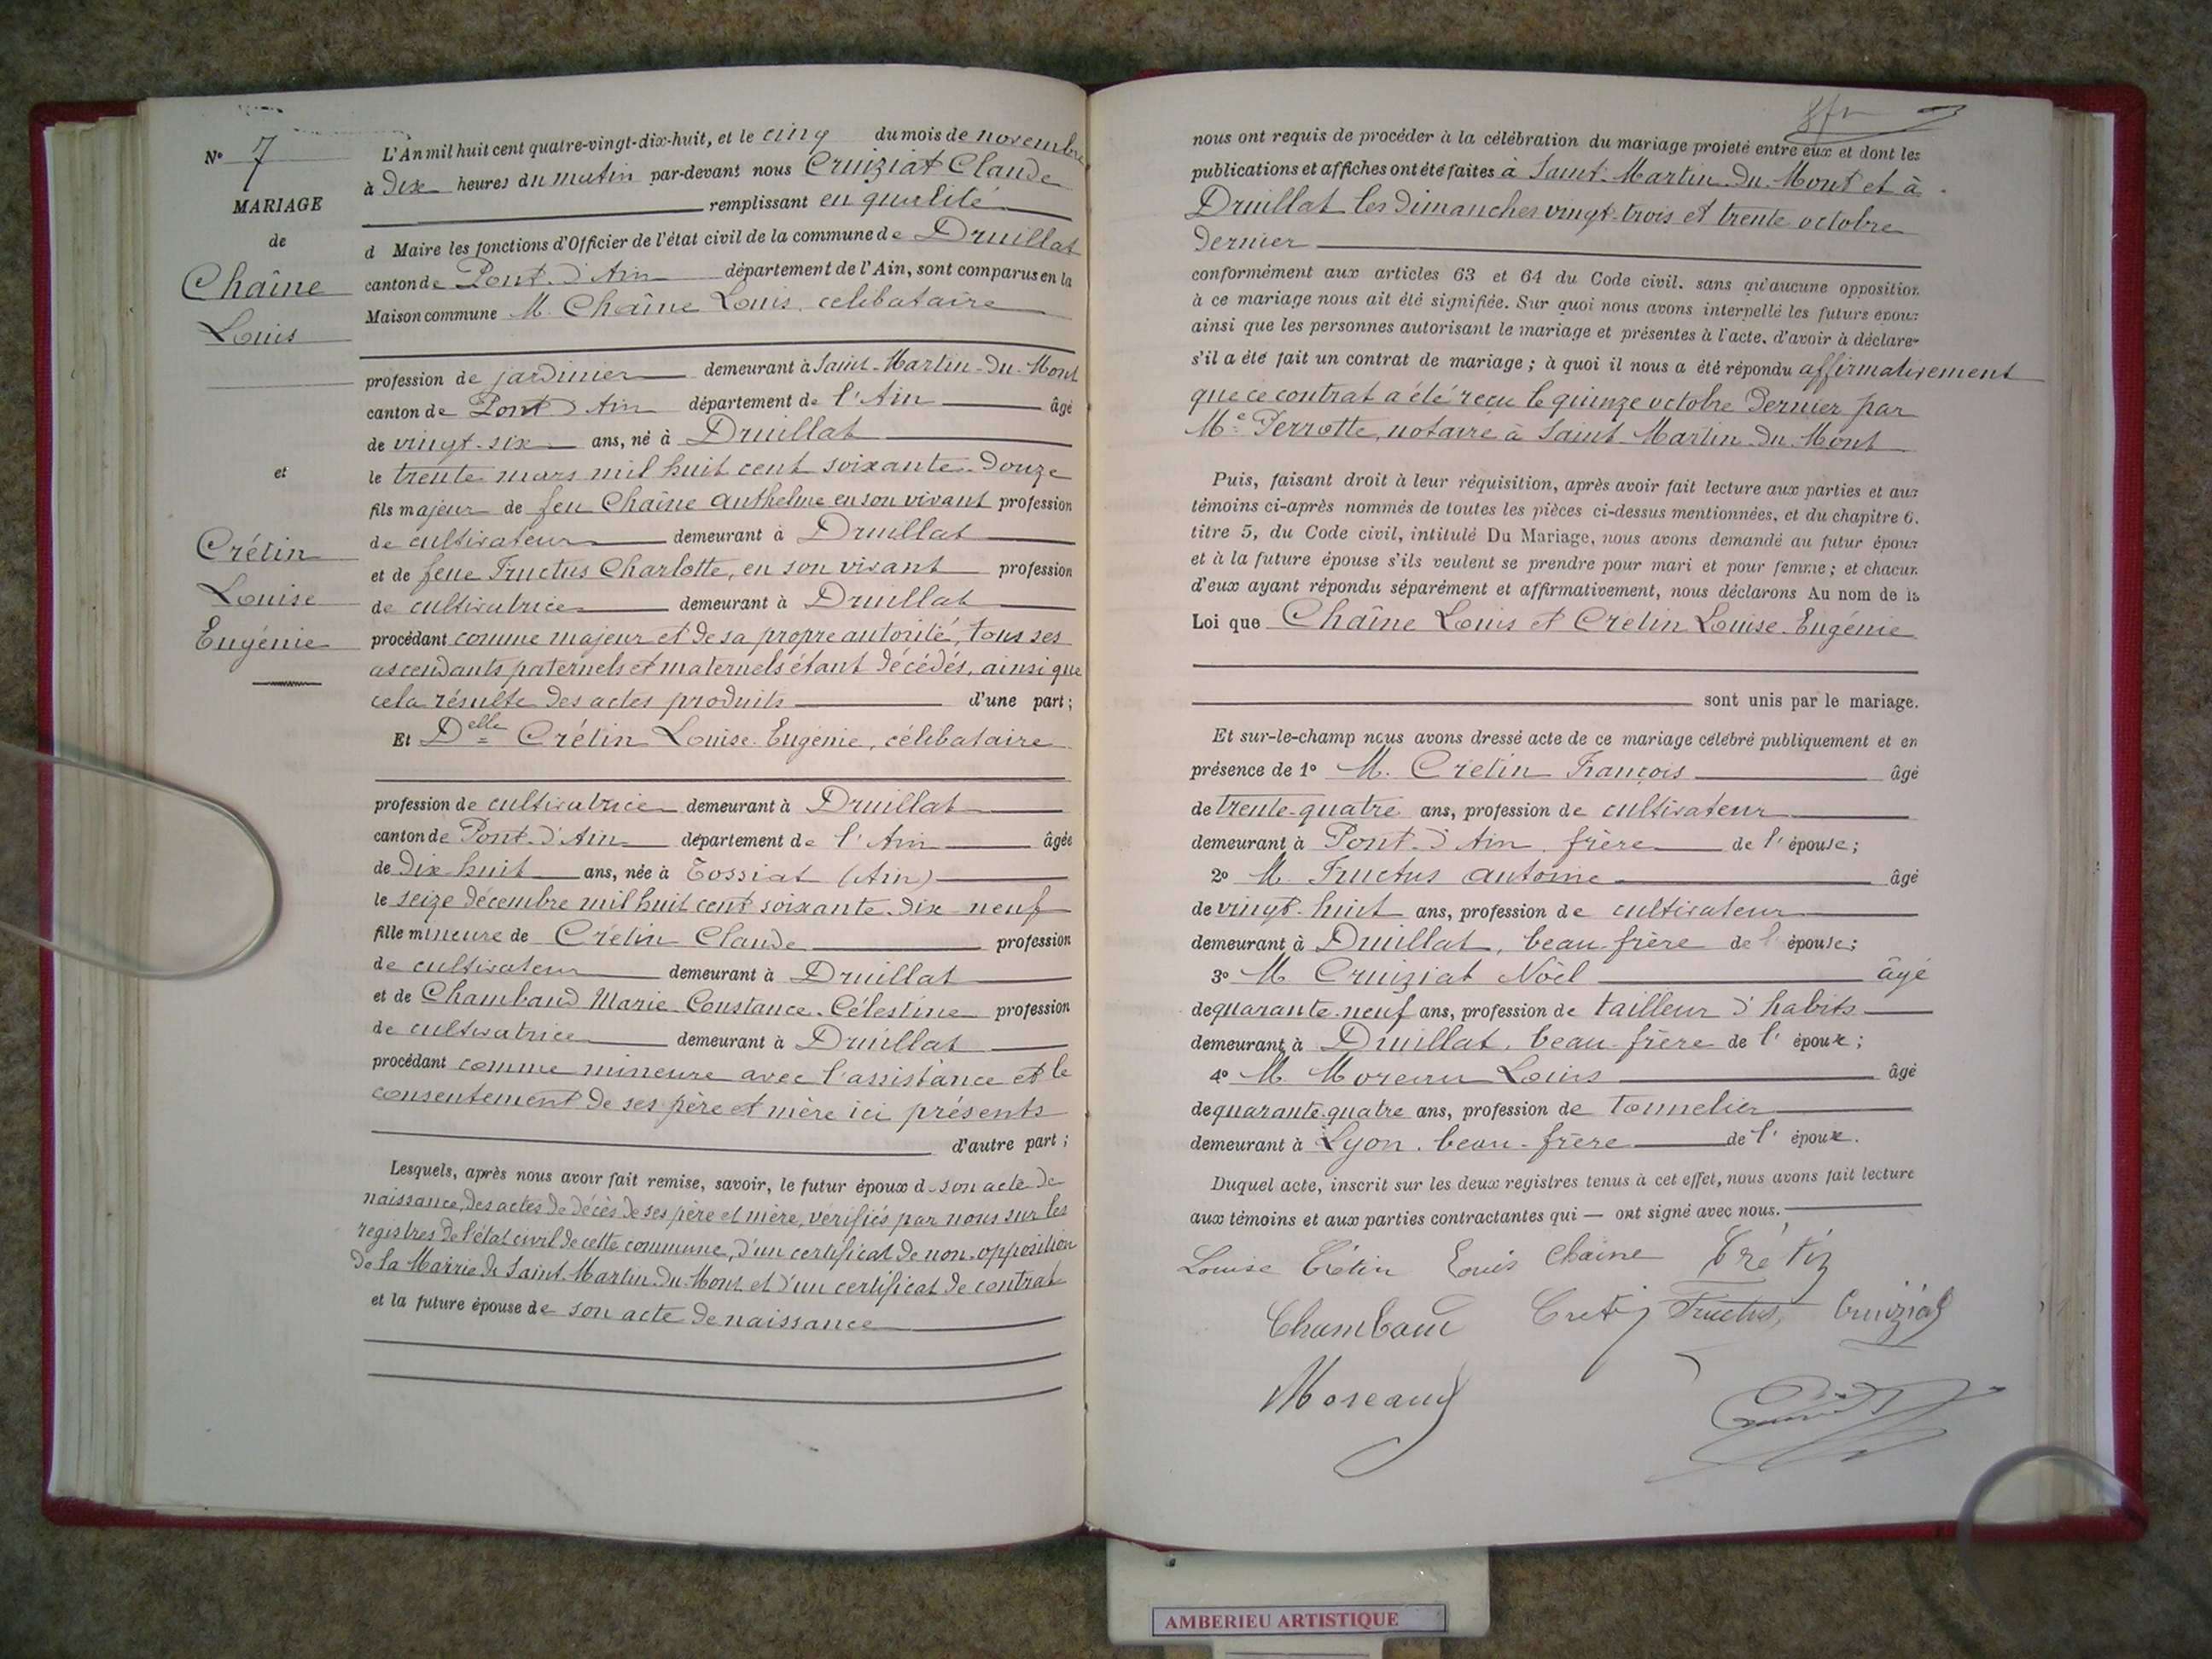 N° 7
MARIAGE
de
Chaîne
Louis
et
Crétin
Louise
Eugénie
L'An mil huit cent quatre-vingt-dix-huit, et le cinq du mois de novembre
à Dix heures du matin par-devant nous Cruiziat Claude
remplissant en qualité
d Maire les fonctions d'Officier de l'état civil de la commune de Druillat
canton de Pont-d'Ain département de l'Ain, sont comparus en la
Maison commune M. Chaîne Louis, célibataire
profession de jardinier demeurant à Saint-Martin-du-Mont
canton de Pont d'Ain département de l'Ain âgé
de vingt-six ans, né à Druillat
le trente mars mil huit cent soixante-douze
fils majeur de feu Chaîne Anthelme en son vivant profession
de cultivateur demeurant à Druillat
et de feue Fructus Charlotte, en son vivant profession
de cultivatrice demeurant à Druillat
procédant comme majeur et de sa propre autorité, tous ses
ascendants paternels et maternels étant décédés, ainsi que
cela résulte des actes produits d'une part;
Et Delle Crétin Louise-Eugénie, célibataire
profession de cultivatrice demeurant à Druillat
canton de Pont-d'Ain département de l'Ain âgée
de Dix huit ans, née à Tossiat (Ain)
le seize décembre mil huit cent soixante-dix-neuf
fille mineure de Crétin Claude profession
de cultivateur demeurant à Druillat
et de Chambaud Marie-Constance-Célestine profession
de cultivatrice demeurant à Druillat
procédant comme mineure avec l'assistance et le
consentement de ses père et mère ici présents
d'autre part;
Lesquels, après nous avoir fait remise, savoir, le futur époux de son acte de
naissance, des actes de décès de ses père et mère, vérifiés par nous sur les
registres de l'état civil de cette commune, d'un certificat de non-opposition
de la Mairie de Saint-Martin-du-Mont et d'un certificat de contrat
et la future épouse de son acte de naissance
nous ont requis de procéder à la célébration du mariage projeté entre eux et dont les
publications et affiches ont été faites à Saint-Martin-du-Mont et à
Druillat les dimanches vingt-trois et trente octobre
dernier
conformément aux articles 63 et 64 du Code civil. sans qu'aucune opposition
à ce mariage nous ait été signifiée. Sur quoi nous avons interpellé les futurs époux
ainsi que les personnes autorisant le mariage et présentes à l'acte, d'avoir à déclarer
s'il a été fait un contrat de mariage; à quoi il nous a été répondu affirmativement
que ce contrat a été reçu le quinze octobre dernier par
Me Perrotte, notaire à Saint-Martin-du-Mont
Puis, faisant droit à leur réquisition, après avoir fait lecture aux parties et aux
témoins ci-après nommés de toutes les pièces ci-dessus mentionnées, et du chapitre 6.
titre 5, du Code civil, intitulé Du Mariage, nous avons demandé au futur époux
et à la future épouse s'ils veulent se prendre pour mari et pour femme; et chacun
d'eux ayant répondu séparément et affirmativement, nous déclarons Au nom de la
Loi que Chaîne Louis et Crétin Louise-Eugénie
sont unis par le mariage.
Et sur-le-champ nous avons dressé acte de ce mariage célébré publiquement et en
présence de 1° M. Crétin François âgé
de trente-quatre ans, profession de cultivateur
demeurant à Pont-d'Ain, frère de l'épouse;
2° M. Fructus Antoine âgé
de vingt-huit ans, profession de cultivateur
demeurant à Druillat, beau-frère de l'épouse;
3° M. Cruiziat Noël âgé
de quarante-neuf ans, profession de tailleur d'habits
demeurant à Druillat, beau-frère de l'époux;
4° M. Moreau Louis âgé
de quarante-quatre ans, profession de tonnelier
demeurant à Lyon, beau-frère de l'époux.
Duquel acte, inscrit sur les deux registres tenus à cet effet, nous avons fait lecture
aux témoins et aux parties contractantes qui — ont signé avec nous.
Louise Crétin Louis Chaine Crétin
Chambaud Cretin Fructus, Cruiziat
Moreaud
AMBERIEU ARTISTIQUE